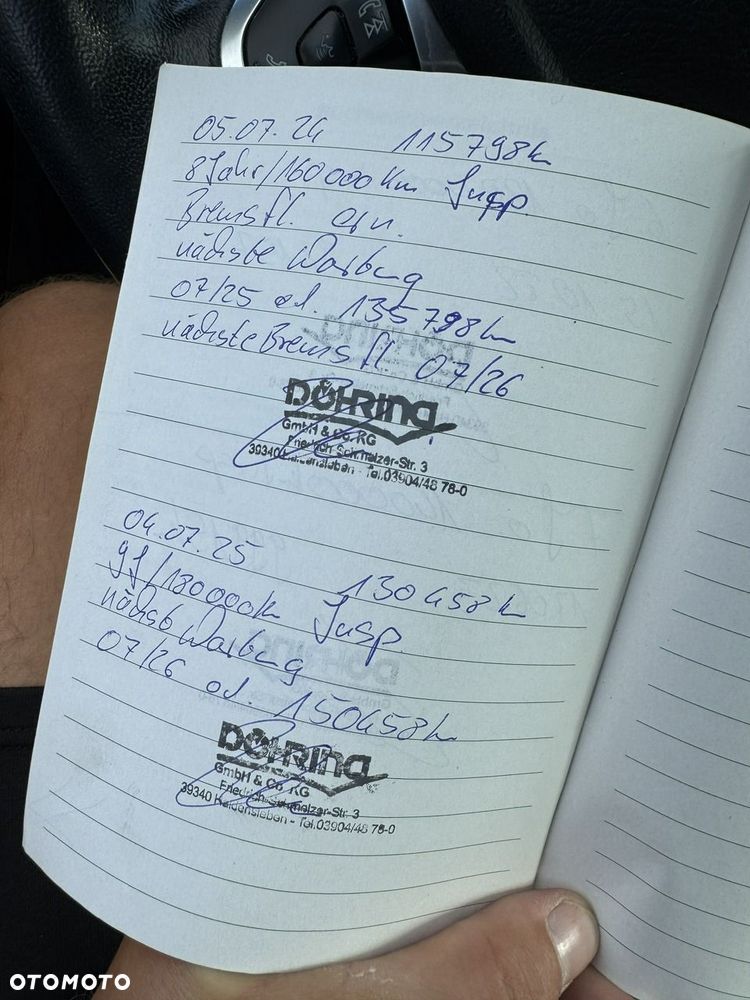 05.07.24 115798k
8 Jahr/160000 Km Insp.
Bremsfl. ern.
nächste Wartung
07/25 od. 135798k
nächste Bremsfl. 07/26
DÖHRING
GmbH & Co. KG
Friedrich-Schmelzer-Str. 3
39340 Haldensleben - Tel.03904/46 78-0
04.07.25 130458k
9J/180000k Insp.
nächste Wartung
07/26 od. 150458k
DÖHRING
GmbH & Co. KG
Friedrich-Schmelzer-Str. 3
39340 Haldensleben - Tel.03904/46 78-0
OTOMOTO